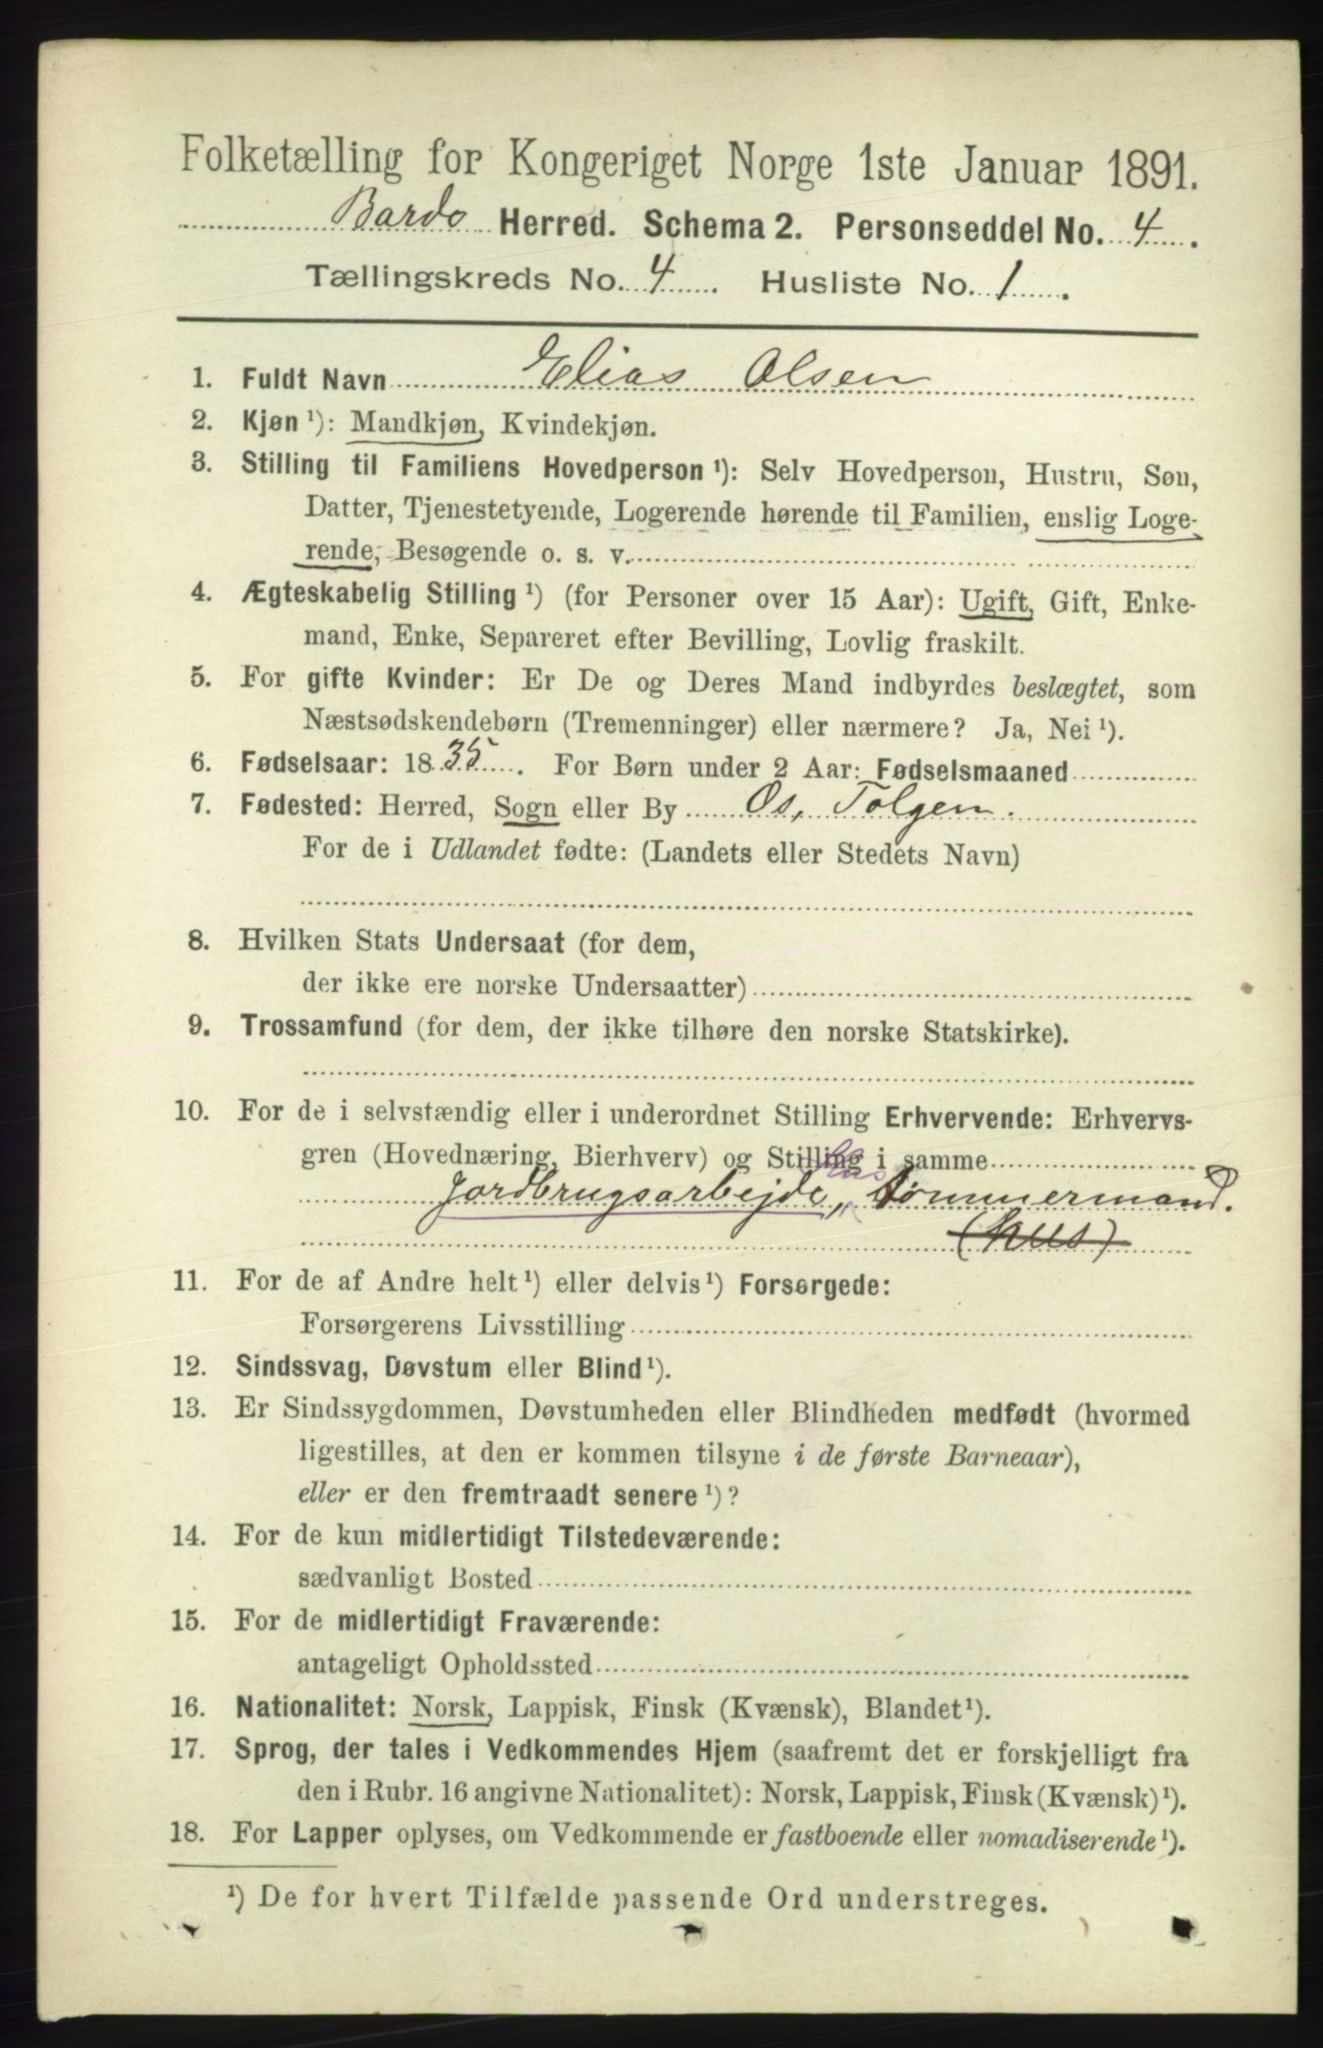 Folketælling for Kongeriget Norge 1ste Januar 1891.
Bardo Herred. Schema 2. Personseddel No. 4.
Tællingskreds No. 4. Husliste No. 1.
1. Fuldt Navn Elias Olsen
2. Kjøn ¹): Mandkjøn, Kvindekjøn.
3. Stilling til Familiens Hovedperson ¹): Selv Hovedperson, Hustru, Søn,
Datter, Tjenestetyende, Logerende hørende til Familien, enslig Loge-
rende, Besøgende o. s. v.
4. Ægteskabelig Stilling ¹) (for Personer over 15 Aar): Ugift, Gift, Enke-
mand, Enke, Separeret efter Bevilling, Lovlig fraskilt.
5. For gifte Kvinder: Er De og Deres Mand indbyrdes beslægtet, som
Næstsødskendebørn (Tremenninger) eller nærmere? Ja, Nei ¹).
6. Fødselsaar: 1835. For Børn under 2 Aar: Fødselsmaaned
7. Fødested: Herred, Sogn eller By Os, Tolgen.
For de i Udlandet fødte: (Landets eller Stedets Navn)
8. Hvilken Stats Undersaat (for dem,
der ikke ere norske Undersaatter)
9. Trossamfund (for dem, der ikke tilhøre den norske Statskirke).
10. For de i selvstændig eller i underordnet Stilling Erhvervende: Erhvervs-
gren (Hovednæring, Bierhverv) og Stilling i samme
Hus
Jordbrugsarbejde, tømmermand.
(hus)
11. For de af Andre helt ¹) eller delvis ¹) Forsørgede:
Forsørgerens Livsstilling
12. Sindssvag, Døvstum eller Blind ¹).
13. Er Sindssygdommen, Døvstumheden eller Blindheden medfødt (hvormed
ligestilles, at den er kommen tilsyne i de første Barneaar),
eller er den fremtraadt senere ¹)?
14. For de kun midlertidigt Tilstedeværende:
sædvanligt Bosted
15. For de midlertidigt Fraværende:
antageligt Opholdssted
16. Nationalitet: Norsk, Lappisk, Finsk (Kvænsk), Blandet ¹).
17. Sprog, der tales i Vedkommendes Hjem (saafremt det er forskjelligt fra
den i Rubr. 16 angivne Nationalitet): Norsk, Lappisk, Finsk (Kvænsk) ¹).
18. For Lapper oplyses, om Vedkommende er fastboende eller nomadiserende ¹).
¹) De for hvert Tilfælde passende Ord understreges.